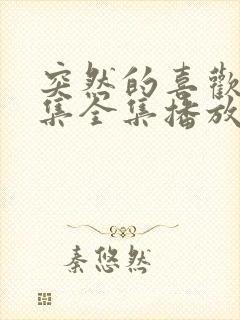 突然的喜歡
集全集播放
秦悠然